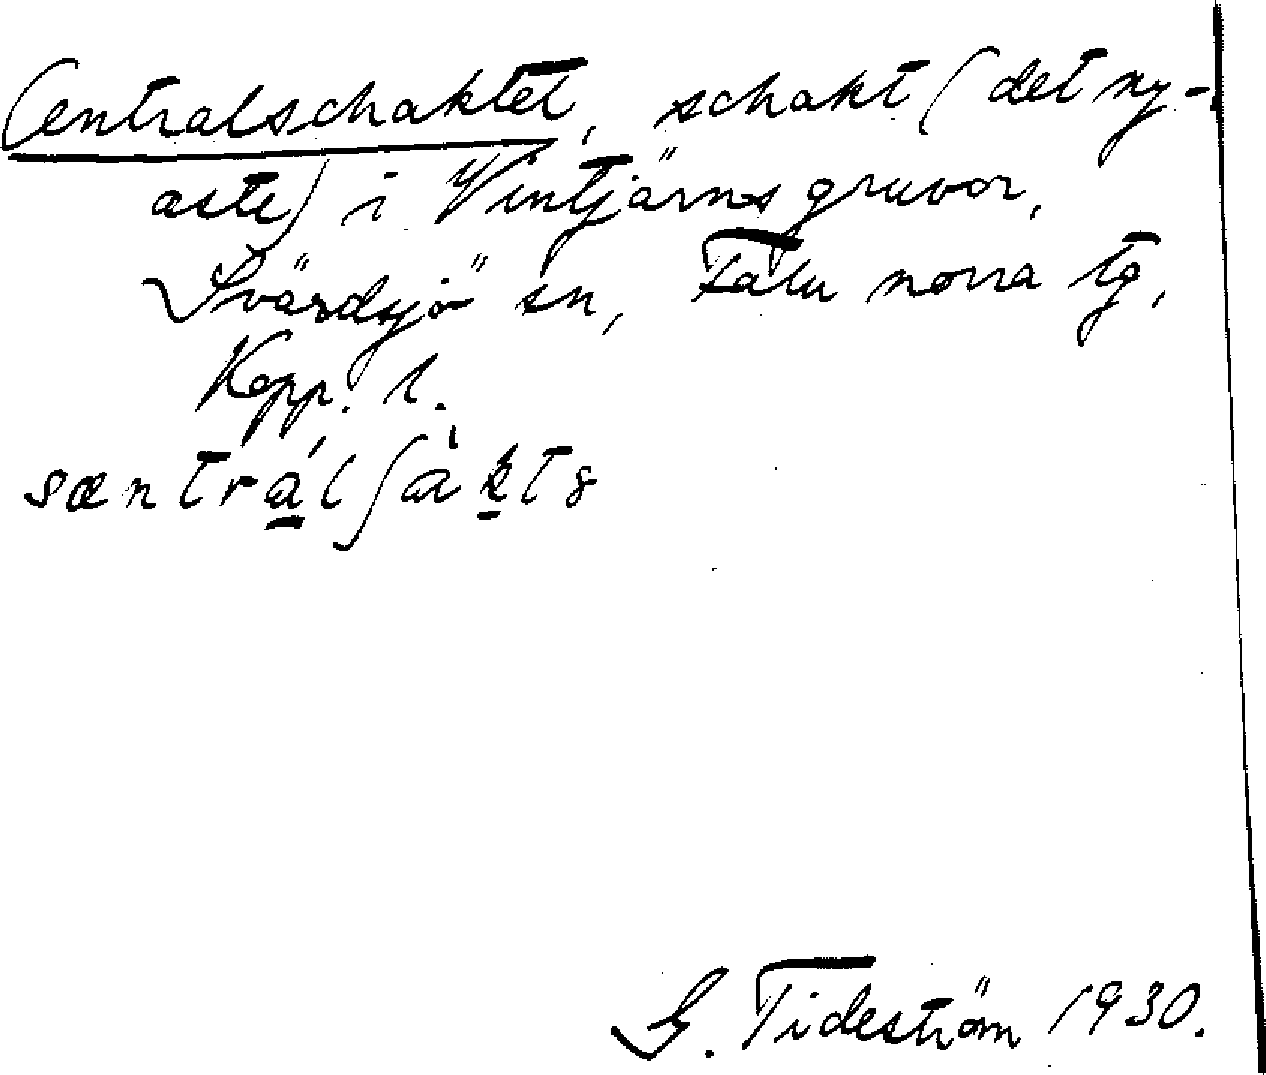 Centralschaktet, schakt (det ny-
aste) i Vintjärns gruvor,
Svärdsjö sn, Falu norra tg,
Kopp. l.
sæntrál ʃàkts
G. Tideström 1930.